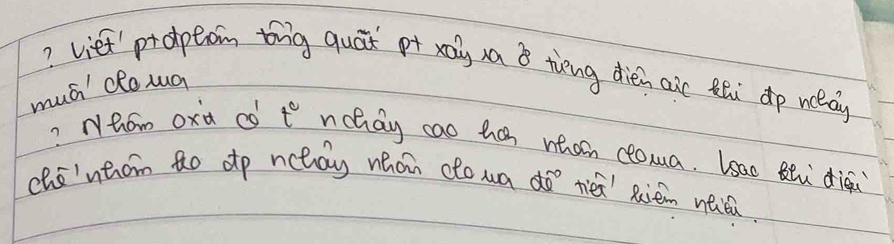 ? Viết ptđpkon tổng quát pt xảy ra ở từng điện cực khi đp nchảy
muối clo rua
? Nhôm oxit có t° nchảy cao hơn nhôm clorua. Vsao khi điều
chế nhôm ko đp nchảy nhôm clo rua để tiết kiệm nhiên